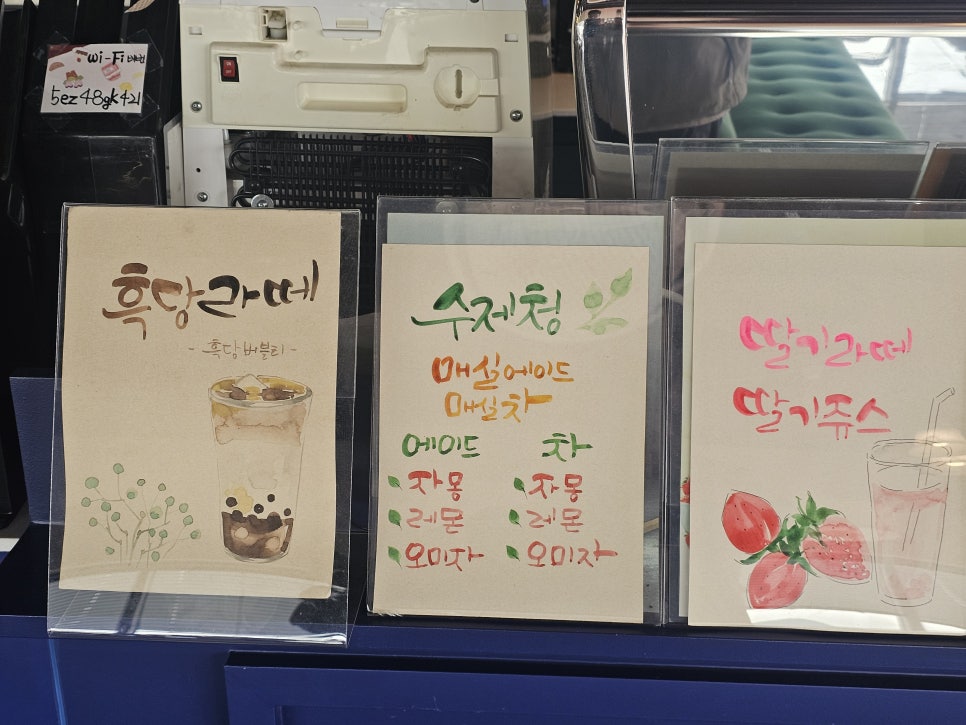 wi-Fi 비번
5ez48gk421
흑당라떼
- 흑당버블티 -
수제청
매실에이드
매실차
에이드 차
자몽 자몽
레몬 레몬
오미자 오미자
딸기라떼
딸기쥬스